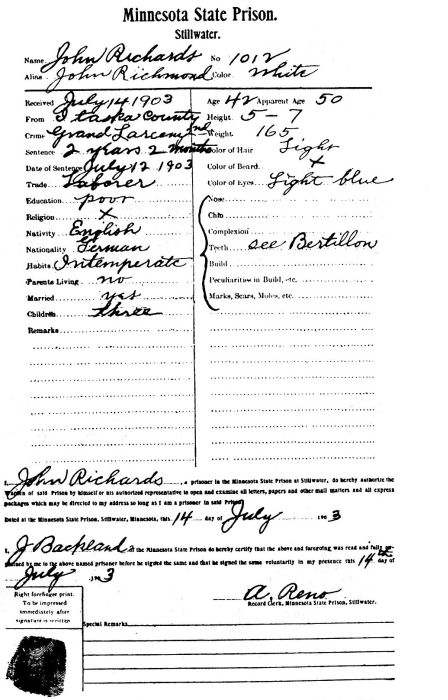 Minnesota State Prison.
Stillwater.
Name John Richards No 1012
Alias John Richmond Color White
Received July 14 1903
From Itaska County
Crime Grand Larceny 2nd
Sentence 2 years 2 months
Date of Sentence July 12 1903
Trade Laborer
Education poor
Religion x
Nativity English
Nationality German
Habits Intemperate
Parents Living no
Married yes
Children three
Remarks
Age 42 Apparent Age 50
Height 5-7
Weight 165
Color of Hair Light
Color of Beard x
Color of Eyes Light blue
Nose
Chin
Complexion
Teeth see Bertillon
Build
Peculiarities in Build, etc.
Marks, Scars, Moles, etc.
I, John Richards, a prisoner in the Minnesota State Prison at Stillwater, do hereby authorize the
Warden of said Prison by himself or his authorized representative to open and examine all letters, papers and other mail matters and all express
packages which may be directed to my address so long as I am a prisoner in said Prison
Dated at the Minnesota State Prison, Stillwater, Minnesota, this 14 day of July 1903
I, J Backland at the Minnesota State Prison do hereby certify that the above and foregoing was read and fully ex-
plained by me to the above named prisoner before he signed the same and that he signed the same voluntarily in my presence this 14th day of
July 1903
A. Reno
Record Clerk, Minnesota State Prison, Stillwater.
Right forefinger print.
To be impressed
immediately after
signature is written
Special Remarks